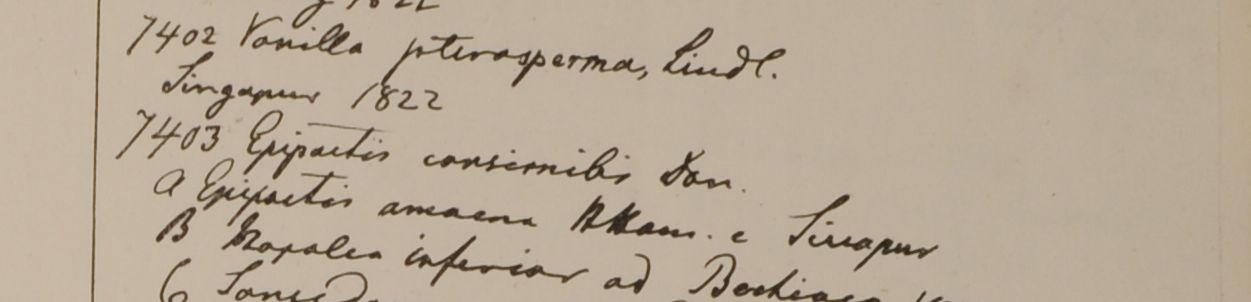 1822
7402 Vanilla pterosperma, Lindl.
Singapur 1822
7403 Epipactis consimilis Don.
a Epipactis amaena Ham. e
B inferior ad
C